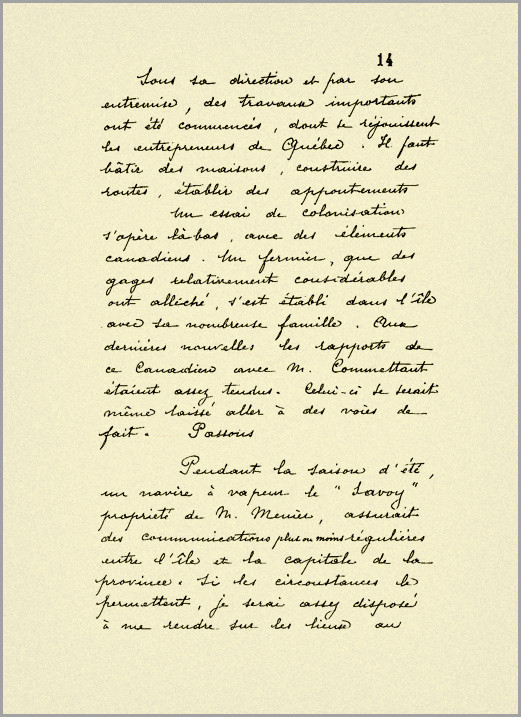 14
Sous sa direction et par son
entremise, des travaux importants
ont été commencés, dont se réjouissent
les entrepreneurs de Québec. Il faut
bâtir des maisons, construire des
routes, établir des appontements
Un essai de colonisation
s'opère là bas, avec des éléments
canadiens. Un fermier, que des
gages relativement considérables
ont alléché, s'est établi dans l'île
avec sa nombreuse famille. Aux
dernières nouvelles les rapports de
ce Canadien avec M. Commettant
étaient assez tendus. Celui-ci se serait
même laissé aller à des voies de
fait. Passons
Pendant la saison d'été,
un navire à vapeur le "Savoy"
propriété de M. Menier, assurait
des communications plus ou moins régulières
entre l'île et la capitale de la
province. Si les circonstances le
permettent, je serai assez disposé
à me rendre sur les lieux au